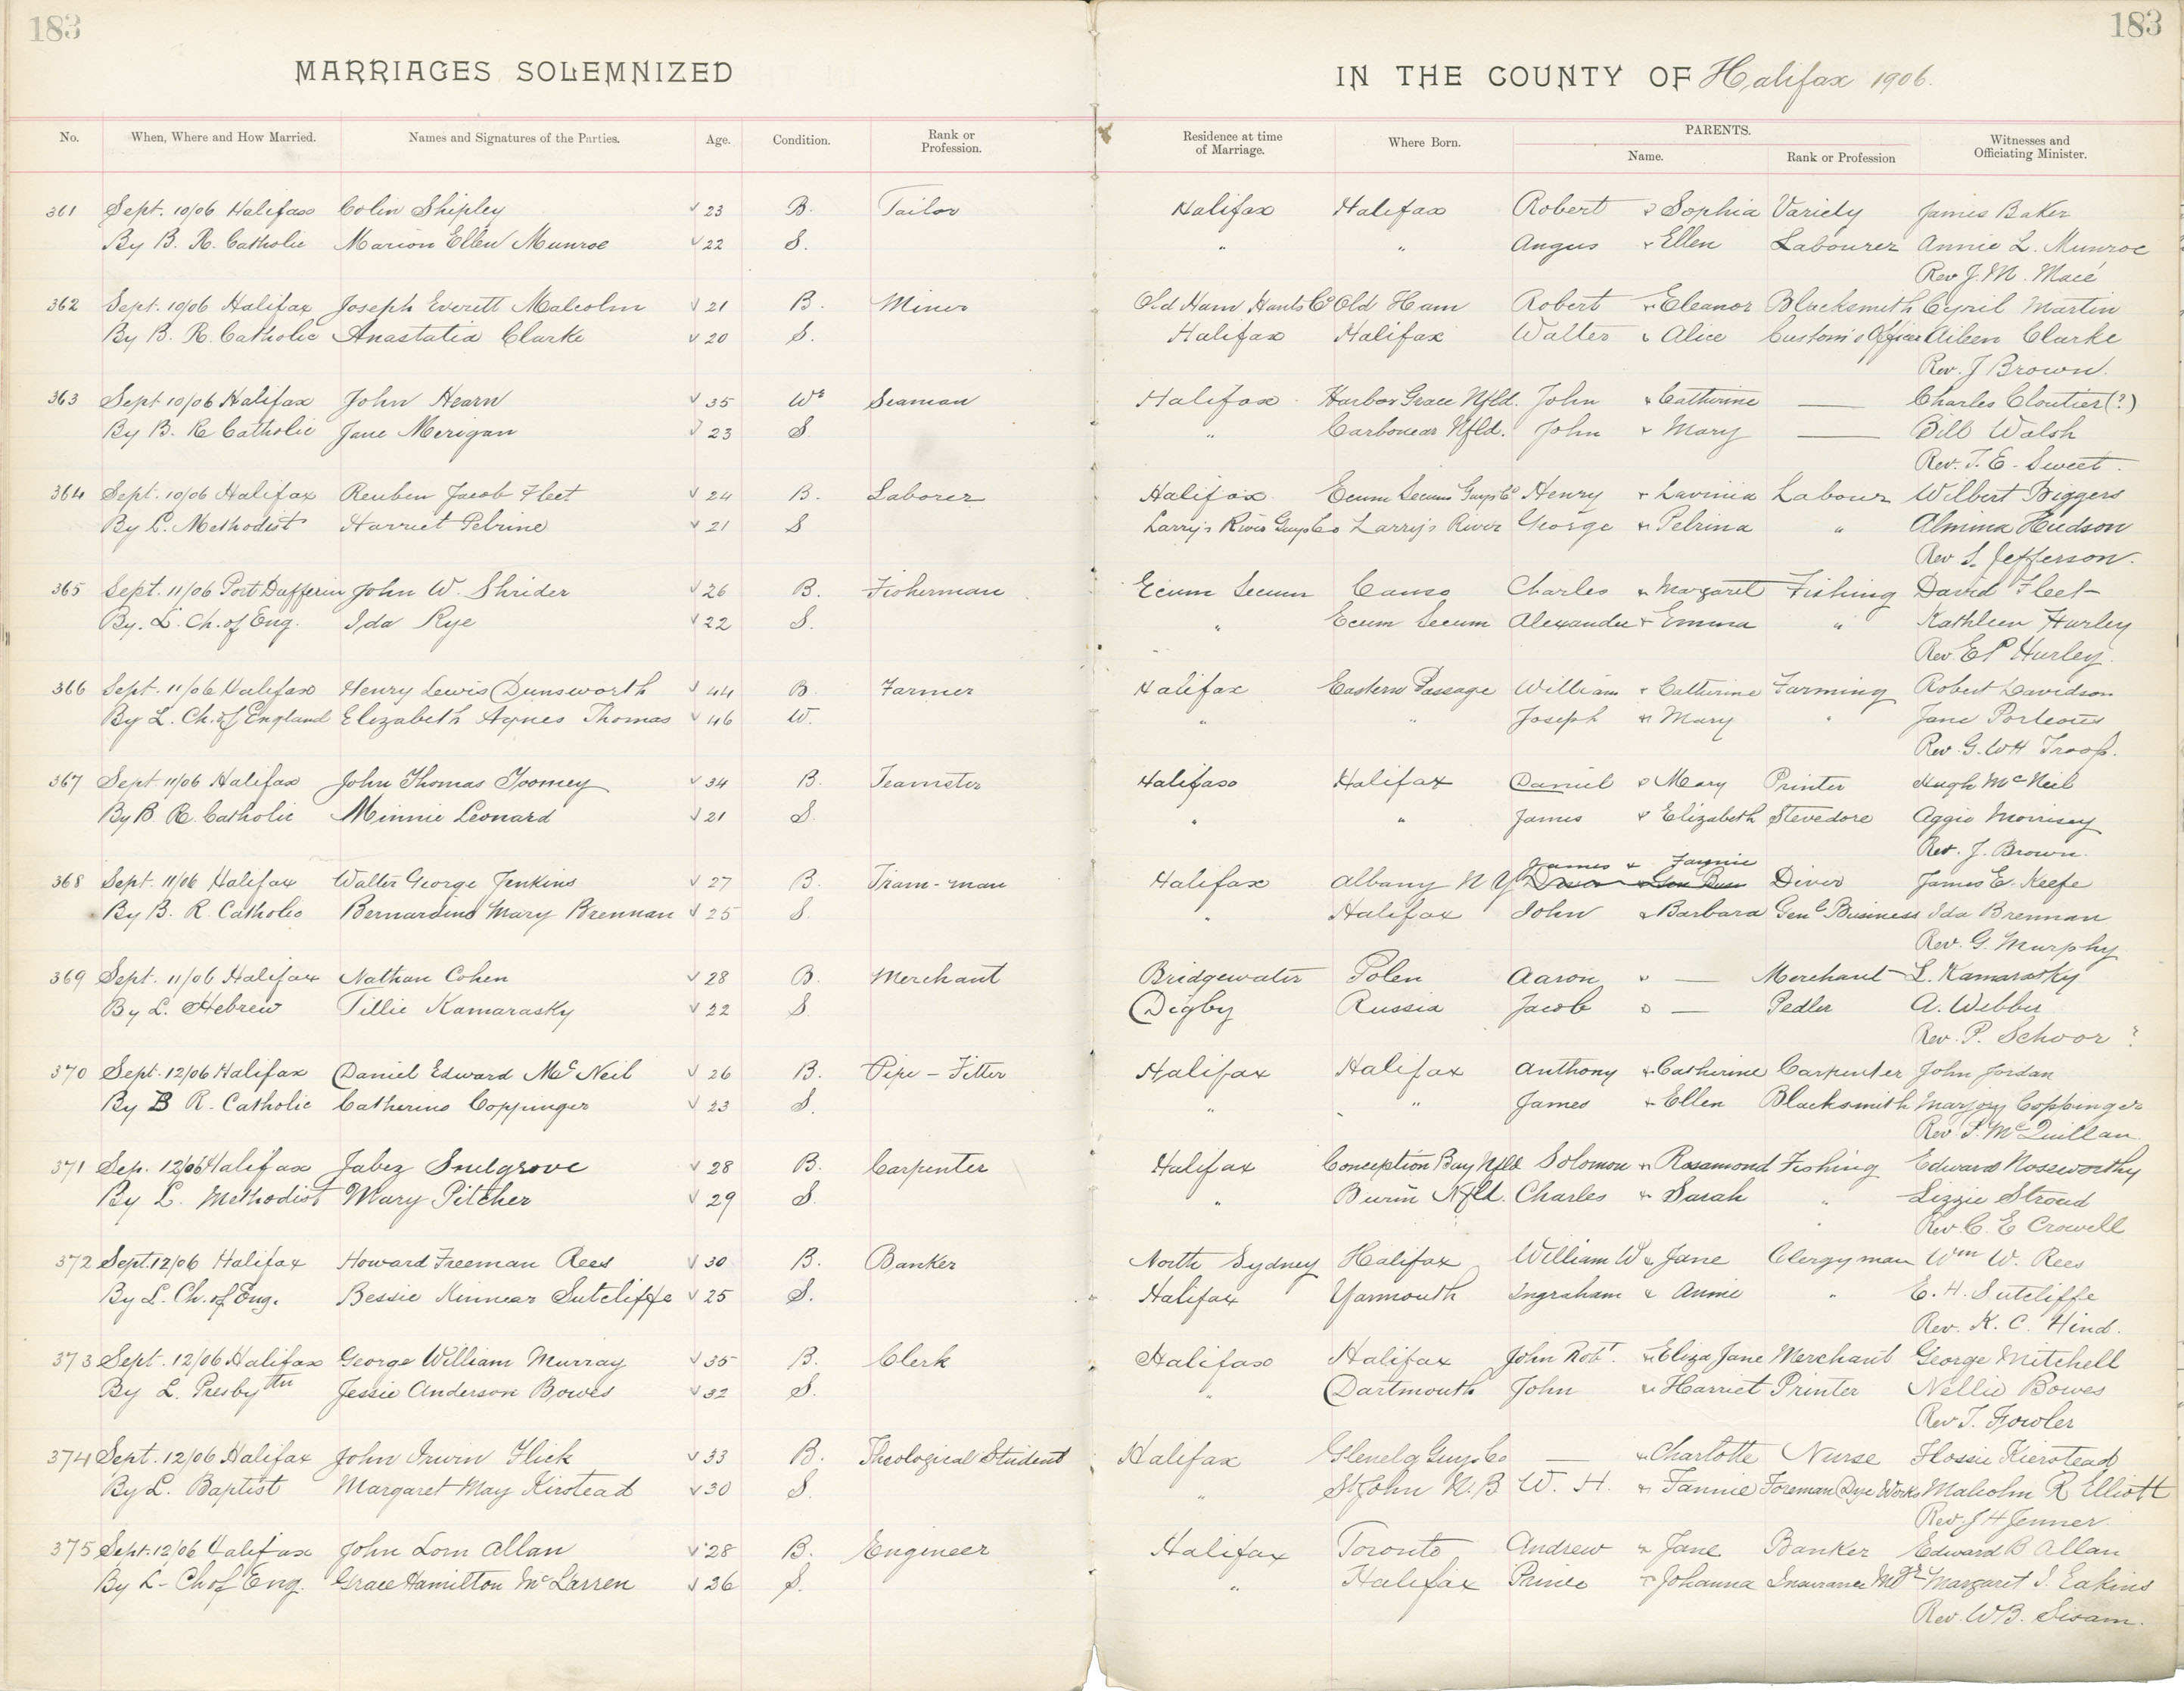 183 183
MARRIAGES SOLEMNIZED IN THE COUNTY OF Halifax 1906.
No. When, Where and How Married. Names and Signatures of the Parties. Age. Condition. Rank or Profession. Residence at time of Marriage. Where Born. PARENTS. Name. Rank or Profession Witnesses and Officiating Minister.
361 Sept. 10/06 Halifax Colin Shipley √ 23 B. Tailor Halifax Halifax Robert & Sophia Variety James Baker
By B. R. Catholic Marion Ellen Munroe √ 22 S. " " Angus & Ellen Labourer Annie L. Munroe
Rev J. M. Macé
362 Sept. 10/06 Halifax Joseph Everett Malcolm √ 21 B. Miner Old Ham, Hants Co Old Ham Robert & Eleanor Blacksmith Cyril Martin
By B. R. Catholic Anastatia Clarke √ 20 S. Halifax Halifax Walter & Alice Custom's Officer Aileen Clarke
Rev. J Brown.
363 Sept 10/06 Halifax John Hearn √ 35 Wr Seaman Halifax Harbor Grace Nfld. John & Catherine — Charles Cloutier (?)
By B. R Catholic Jane Merigan √ 23 S " Carbonear Nfld. John & Mary — Bill Walsh
Rev. T. E. Sweet.
364 Sept. 10/06 Halifax Reuben Jacob Fleet √ 24 B. Laborer Halifax Ecum Secum Guys Co Henry & Lavinia Labour Wilbert Biggers
By L. Methodist Harriet Pelrine √ 21 S Larry's River Guys Co Larry's River George & Pelrina " Almina Hudson
Rev S. Jefferson.
365 Sept. 11/06 Port Dufferin John W. Shrider √ 26 B. Fisherman Ecum Secum Canso Charles & Margaret Fishing David Fleet
By. L. Ch. of Eng. Ida Rye √ 22 S. " Ecum Secum Alexander & Emma " Kathleen Hurley
Rev. E P Hurley.
366 Sept. 11/06 Halifax Henry Lewis Dunsworth √ 44 B. Farmer Halifax Eastern Passage William & Catherine Farming Robert Davidson
By L. Ch. of England Elizabeth Agnes Thomas √ 46 W. " " Joseph & Mary " Jane Porteous
Rev. G. W H Troop.
367 Sept 11/06 Halifax John Thomas Toomey √ 34 B. Teamster Halifax Halifax Daniel & Mary Printer Hugh McNeil
By B R. Catholic Minnie Leonard √ 21 S. " " James & Elizabeth Stevedore Aggie Morrisey
Rev. J. Brown.
James & Fannie
368 Sept. 11/06 Halifax Walter George Jenkins √ 27 B. Tram-man Halifax Albany N Y Diver James E. Keefe
By B. R. Catholic Bernardine Mary Brennan √ 25 S. " Halifax John & Barbara Genl Business Ida Brennan
Rev. G. Murphy
369 Sept. 11/06 Halifax Nathan Cohen √ 28 B. Merchant Bridgewater Polen Aaron & — Merchant L. Kamarasky
By L. Hebrew Tillie Kamarasky √ 22 S. Digby Russia Jacob & — Pedler A. Webber
Rev. P. Schoor ?
370 Sept. 12/06 Halifax Daniel Edward McNeil √ 26 B. Pipe-Fitter Halifax Halifax Anthony & Catherine Carpenter John Jordan
By B R. Catholic Catherine Coppinger √ 23 S. " " James & Ellen Blacksmith Marjory Coppinger
Rev. P. McQuillan.
371 Sep. 12/06 Halifax Jabez Snelgrove √ 28 B. Carpenter Halifax Conception Bay Nfld Solomon & Rosamond Fishing Edward Nosseworthy
By L. Methodist Mary Pitcher √ 29 S. " Burin Nfld. Charles & Sarah " Lizzie Stroud
Rev C. E Crowell
372 Sept. 12/06 Halifax Howard Freeman Rees √ 30 B. Banker North Sydney Halifax William W & Jane Clergyman Wm W. Rees
By L. Ch. of Eng. Bessie Kinnear Sutcliffe √ 25 S. Halifax Yarmouth Ingraham & Annie " E. H. Sutcliffe
Rev. K. C. Hind.
373 Sept. 12/06 Halifax George William Murray √ 35 B. Clerk Halifax Halifax John Robt. & Eliza Jane Merchant George Mitchell
By L. Presbytn Jessie Anderson Bowes √ 32 S. " Dartmouth John & Harriet Printer Nellie Bowes
Rev T. Fowler
374 Sept. 12/06 Halifax John Irwin Flick √ 33 B. Theological Student Halifax Glenelg Guys Co — & Charlotte Nurse Flossie Kierstead
By L. Baptist Margaret May Kirstead √ 30 S. " St John N. B W. H. & Fannie Foreman Dye Works Malcolm R Elliott
Rev. J H Jenner.
375 Sept. 12/06 Halifax John Lorn Allan √ 28 B. Engineer Halifax Toronto Andrew & Jane Banker Edward B Allan
By L- Ch of Eng. Grace Hamilton McLarren √ 26 S. " Halifax & Johanna Insurance Mgr Margaret S. Eakins
Rev. W B. Sisam.